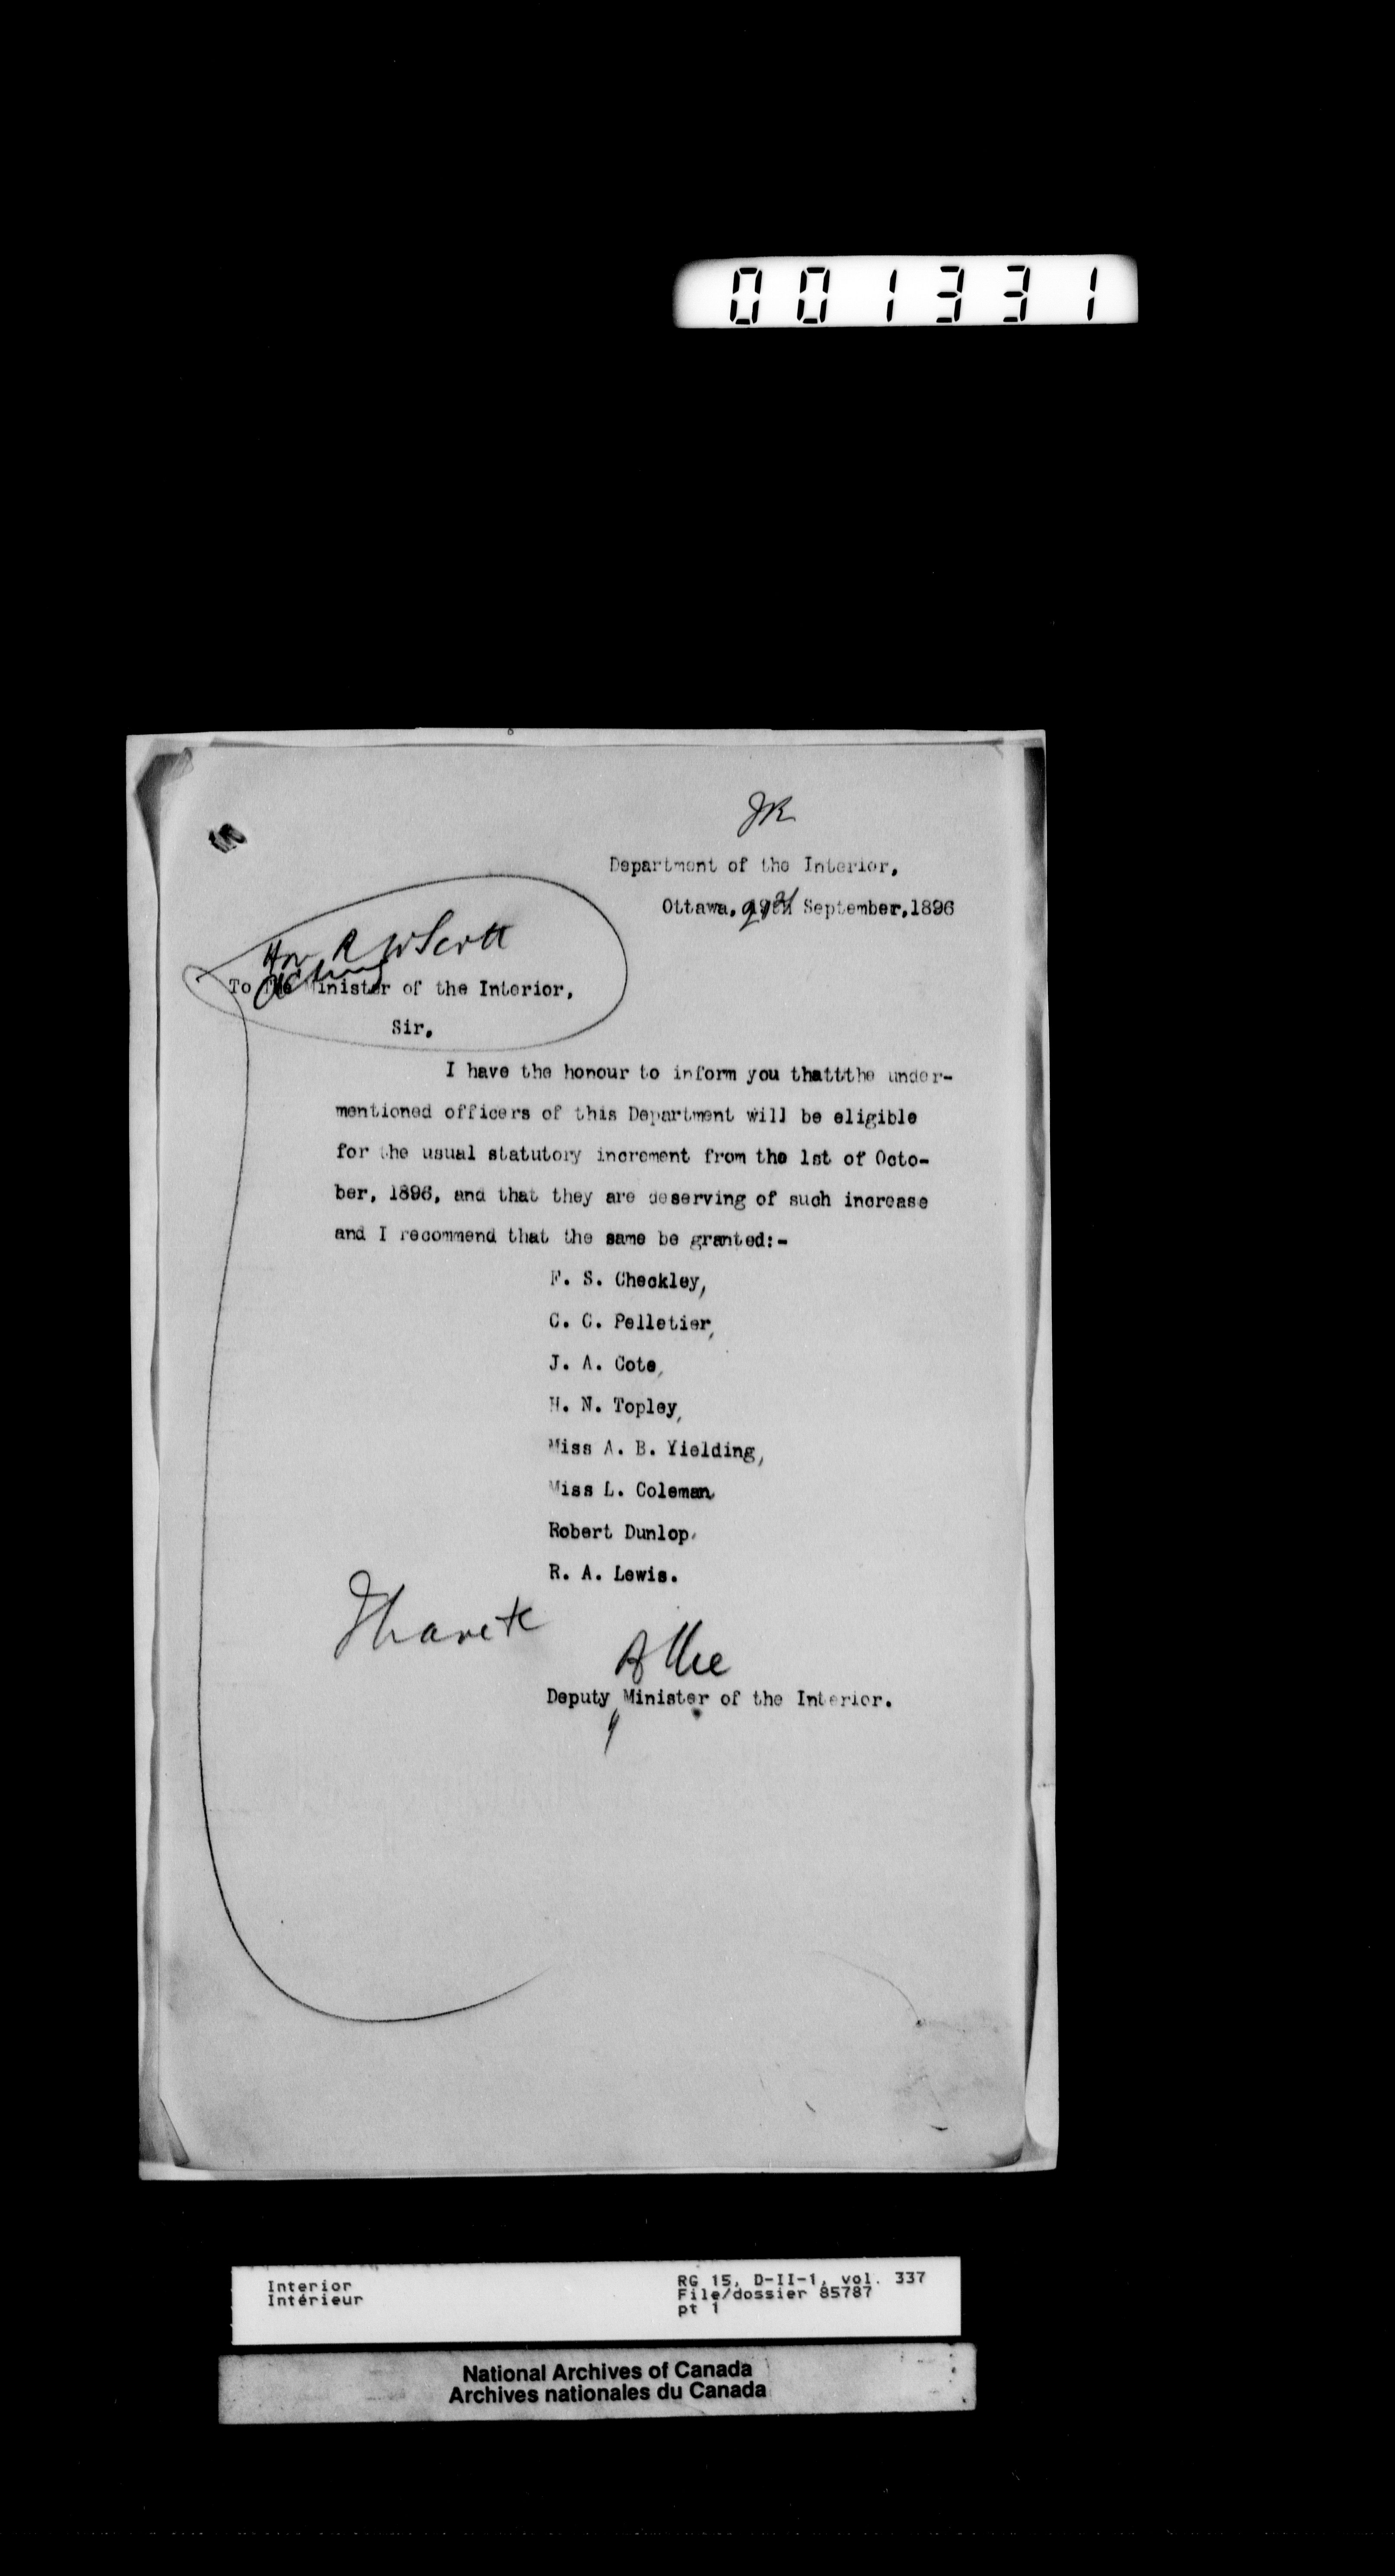 001331
Department of the Interior,
Ottawa, September, 1896
Hon R W Scott
Acting
To The Minister of the Interior,
Sir,
I have the honour to inform you thattthe under-
mentioned officers of this Department will be eligible
for the usual statutory increment from the 1st of Octo-
ber, 1896, and that they are deserving of such increase
and I recommend that the same be granted:-
F. S. Checkley,
C. C. Pelletier,
J. A. Cote,
H. N. Topley,
Miss A. B. Yielding,
Miss L. Coleman
Robert Dunlop.
R. A. Lewis.
Deputy Minister of the Interior.
Interior
Intérieur
RG 15, D-II-1, vol. 337
File/dossier 85787
pt 1
National Archives of Canada
Archives nationales du Canada